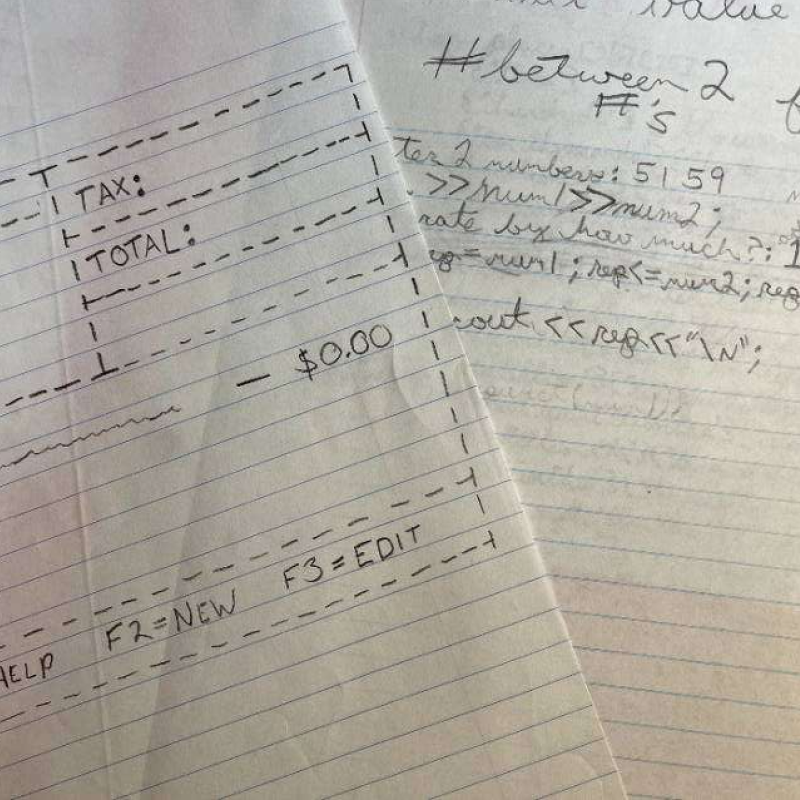 TAX:
TOTAL:
- $0.00
HELP F2=NEW F3=EDIT
value
#between 2
#'s
ter 2 numbers: 51 59
. >>num1>>num2;
rate by how much?: 1
=num1; rep<=num2; rep
cout <<rep<<"\N";